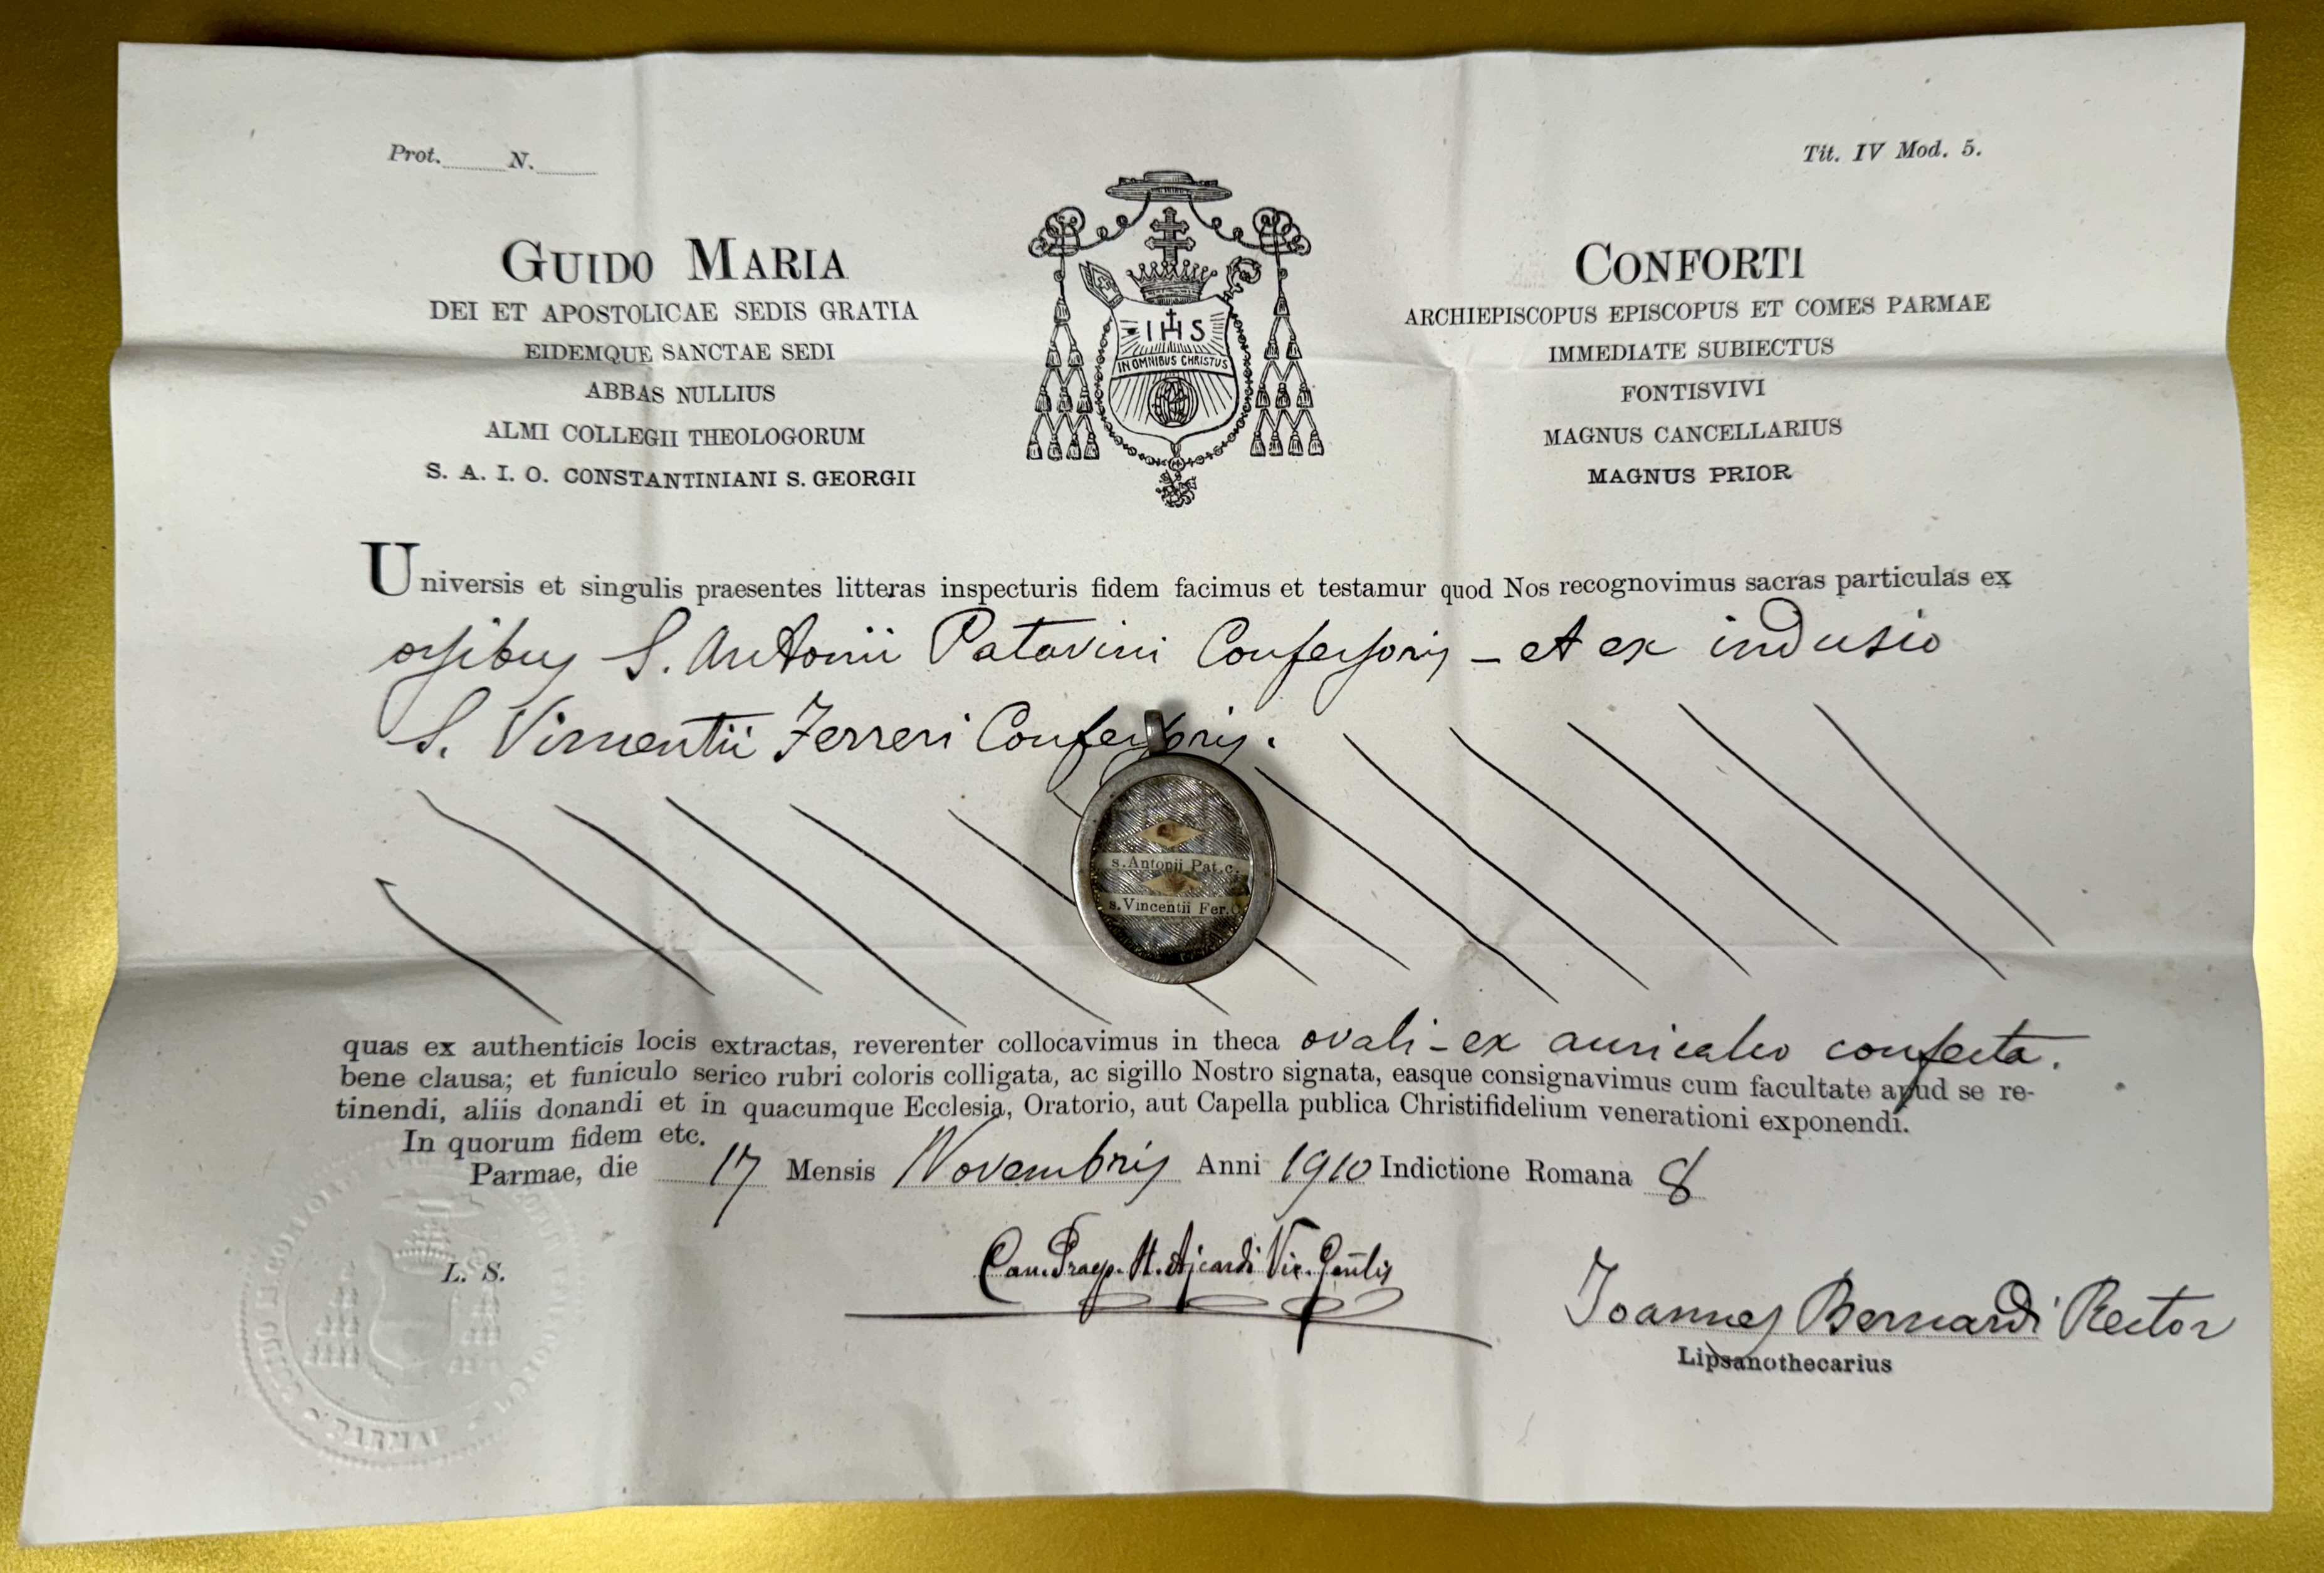 Prot. N.
Tit. IV Mod. 5.
GUIDO MARIA
CONFORTI
DEI ET APOSTOLICAE SEDIS GRATIA
ARCHIEPISCOPUS EPISCOPUS ET COMES PARMAE
EIDEMQUE SANCTAE SEDI
IMMEDIATE SUBIECTUS
ABBAS NULLIUS
FONTISVIVI
ALMI COLLEGII THEOLOGORUM
MAGNUS CANCELLARIUS
S. A. I. O. CONSTANTINIANI S. GEORGII
MAGNUS PRIOR
IHS
IN OMNIBUS CHRISTUS
Universis et singulis praesentes litteras inspecturis fidem facimus et testamur quod Nos recognovimus sacras particulas ex
ossibus S. Antonii Patavini Confessoris – et ex indusio
S. Vincentii Ferreri Confessoris.
s. Antonii Pat. c.
s. Vincentii Fer. C
quas ex authenticis locis extractas, reverenter collocavimus in theca ovali – ex auricalco confecta.
bene clausa; et funiculo serico rubri coloris colligata, ac sigillo Nostro signata, easque consignavimus cum facultate apud se re-
tinendi, aliis donandi et in quacumque Ecclesia, Oratorio, aut Capella publica Christifidelium venerationi exponendi.
In quorum fidem etc.
Parmae, die 17 Mensis Novembris Anni 1910 Indictione Romana 8
L. S.
Can. Praep. H. Ajcardi Vic. Gēnlis
Joannes Bernardi Rector
Lipsanothecarius
PARMAE